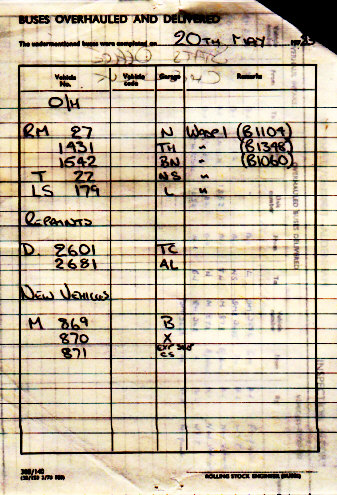 BUSES OVERHAULED AND DELIVERED
The undermentioned buses were completed on 20TH MAY
Vehicle No. Vehicle code Garage Remarks
O/H
RM 27 N WDPL (B1104)
1431 TH " (B1348)
1642 BN " (B1060)
T 27 NS "
LS 179 L "
REPAINTS
D. 2601 TC
2681 AL
NEW VEHICLES
M 869 B
870 X
871 CS
ROLLING STOCK ENGINEER (BUSES)